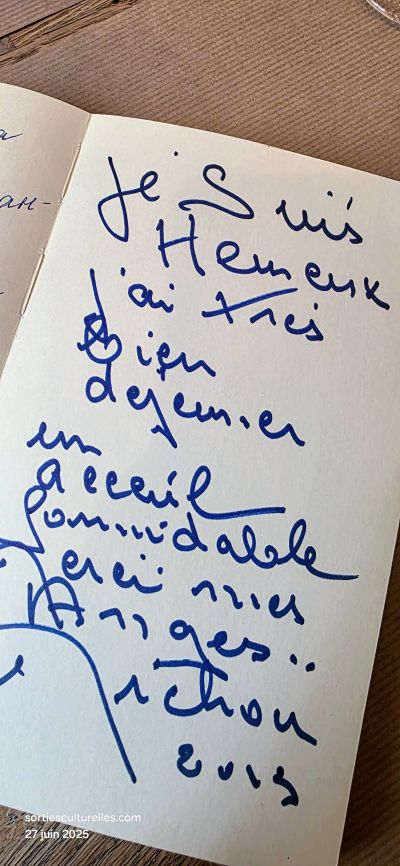 a
ан-
je suis
Heureux
j'ai très
Bien
dejeuner
un
acceuil
formidable
Merci mes
Anges..
Michou
2019
sortiesculturelles.com
27 juin 2025